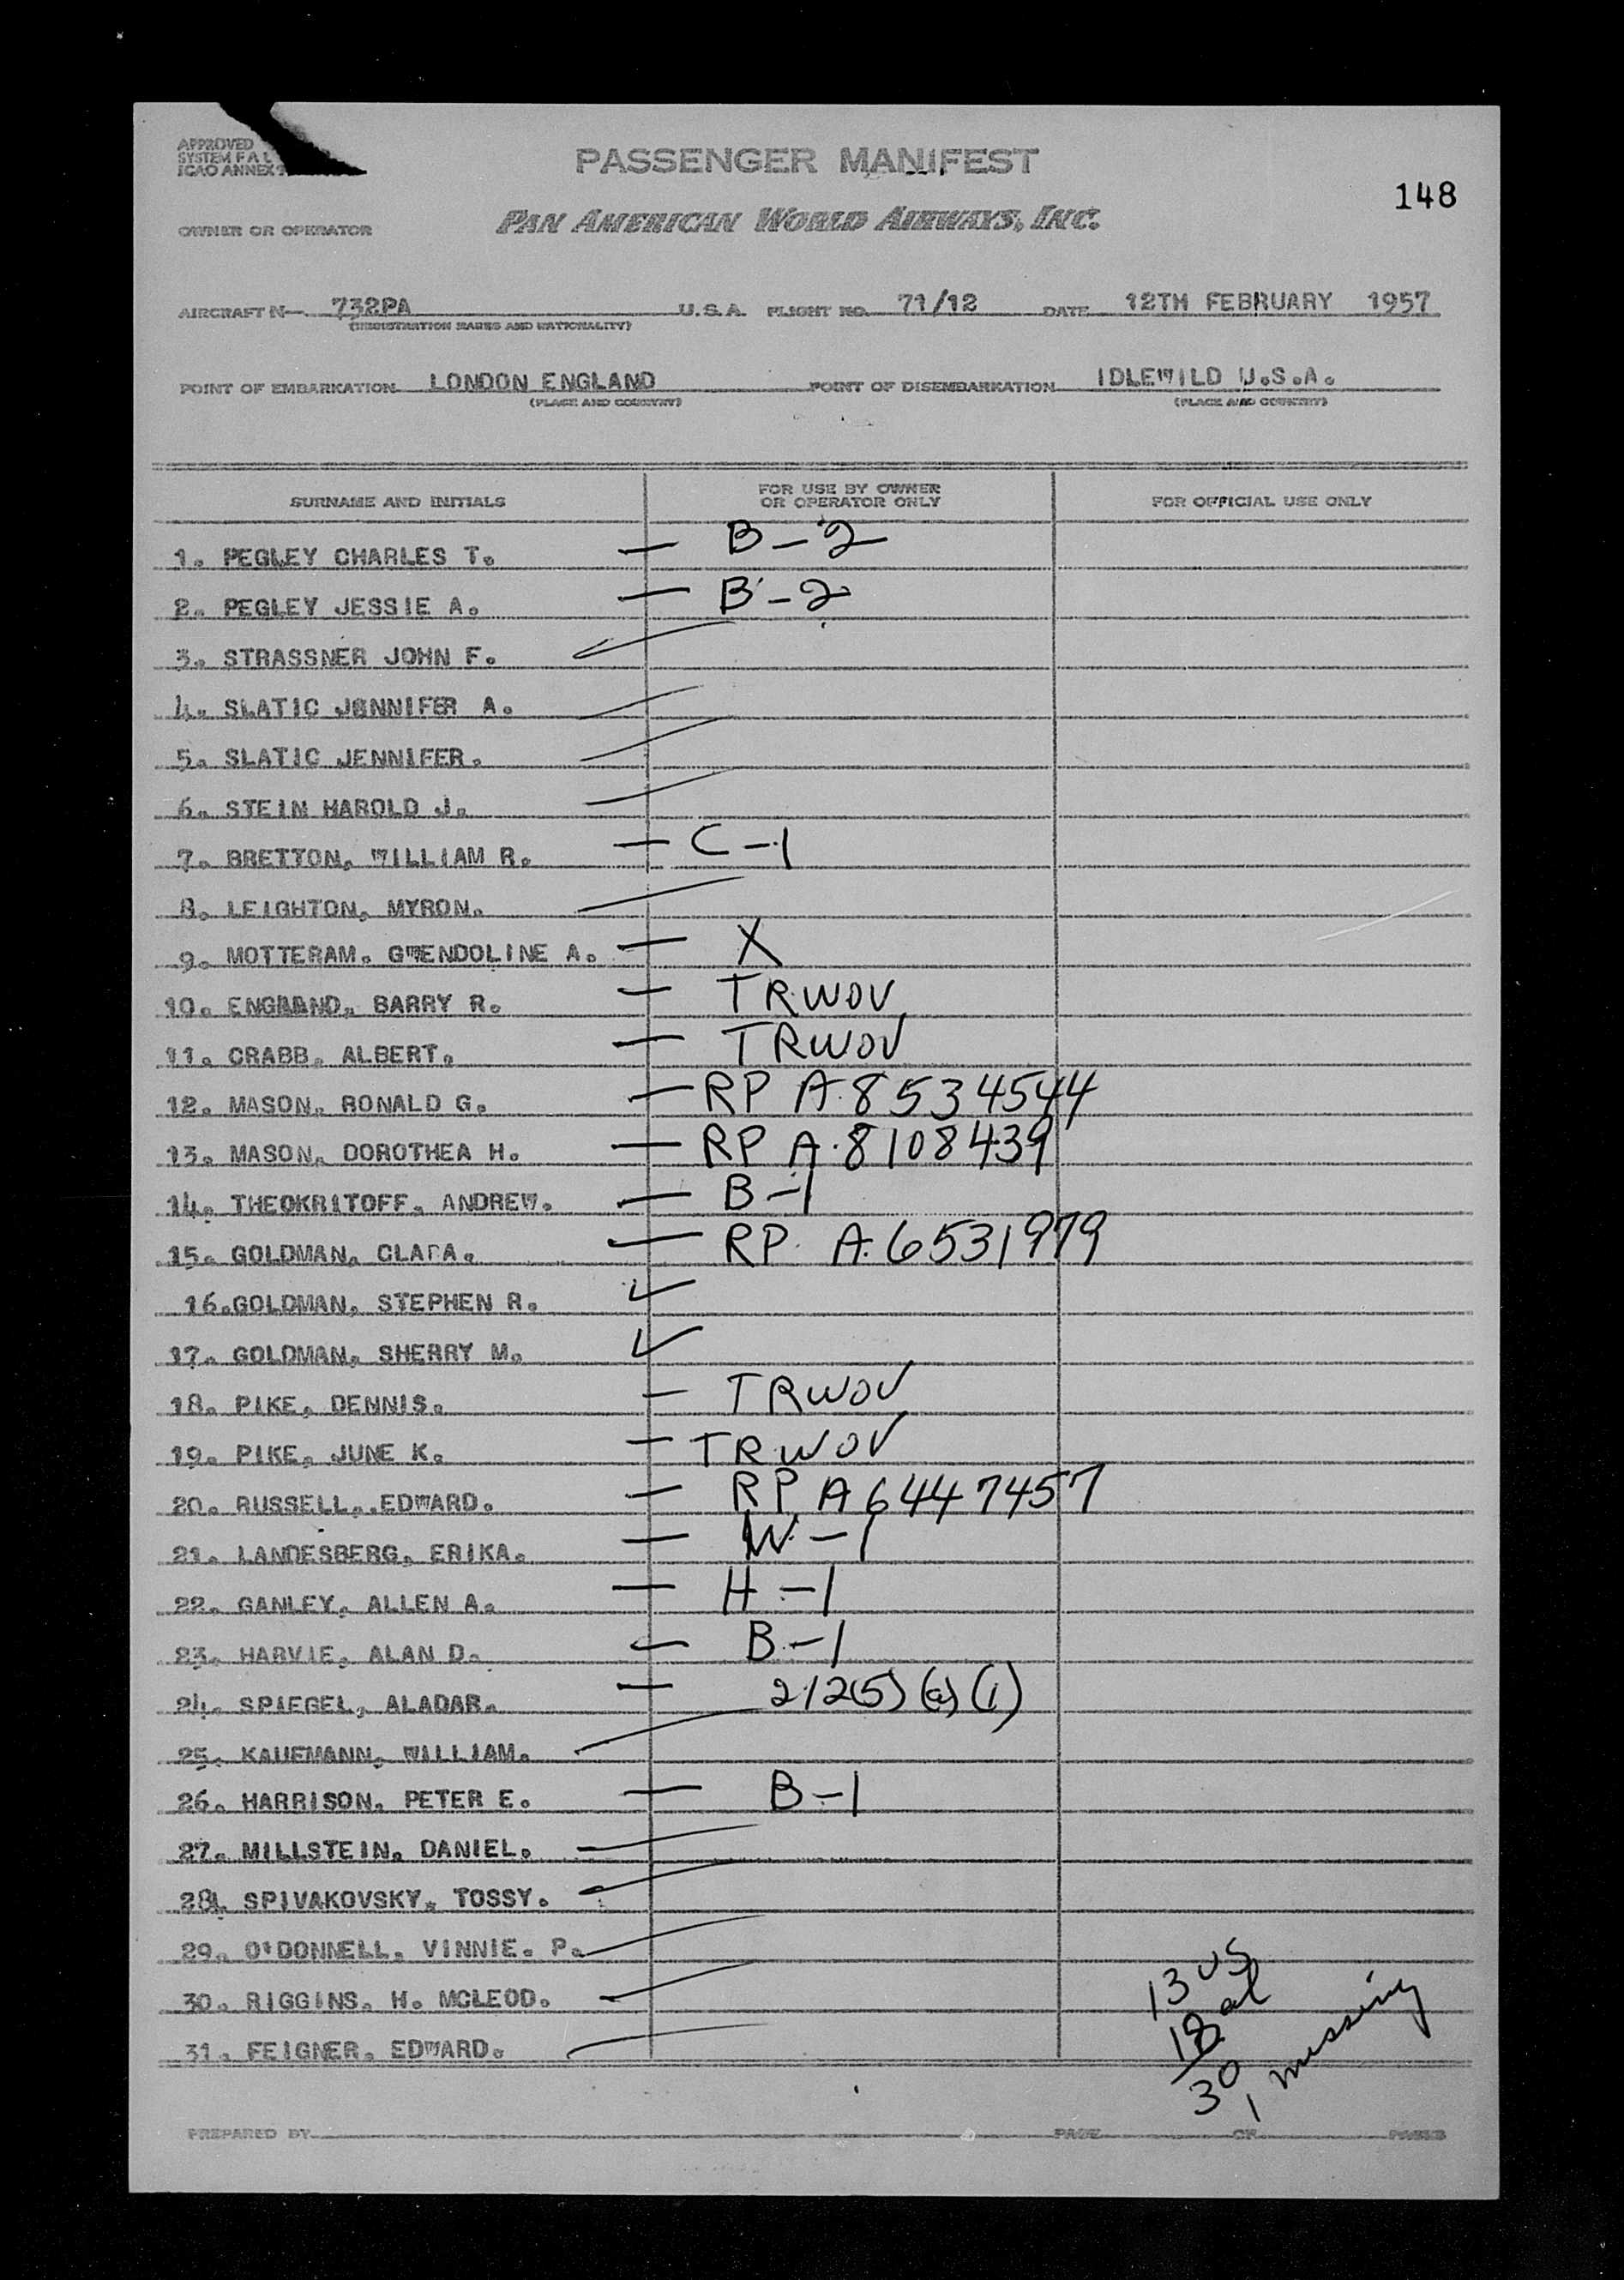 APPROVED
SYSTEM F A L
ICAO ANNEX 9
PASSENGER MANIFEST
148
OWNER OR OPERATOR PAN AMERICAN WORLD AIRWAYS, INC.
AIRCRAFT N— 732PA U.S.A. FLIGHT NO. 71/12 DATE 12TH FEBRUARY 1957
(REGISTRATION MARKS AND NATIONALITY)
POINT OF EMBARKATION LONDON ENGLAND POINT OF DISEMBARKATION IDLEWILD U.S.A.
(PLACE AND COUNTRY) (PLACE AND COUNTRY)
SURNAME AND INITIALS FOR USE BY OWNER OR OPERATOR ONLY FOR OFFICIAL USE ONLY
1. PEGLEY CHARLES T. — B-2
2. PEGLEY JESSIE A. — B-2
3. STRASSNER JOHN F.
4. SLATIC JENNIFER A.
5. SLATIC JENNIFER.
6. STEIN HAROLD J.
7. BRETTON, WILLIAM R. — C-1
8. LEIGHTON, MYRON.
9. MOTTERAM. GWENDOLINE A. — X
10. ENGLAND, BARRY R. — TRWOV
11. CRABB, ALBERT. — TRWOV
12. MASON, RONALD G. — RP A.8534544
13. MASON, DOROTHEA H. — RP A.8108439
14. THEOKRITOFF, ANDREW. — B-1
15. GOLDMAN, CLARA. — RP. A.6531979
16. GOLDMAN, STEPHEN R. ✓
17. GOLDMAN, SHERRY M. ✓
18. PIKE, DENNIS. — TRWOV
19. PIKE, JUNE K. — TRWOV
20. RUSSELL, EDWARD. — RP A6447457
21. LANDESBERG, ERIKA. — W-1
22. GANLEY, ALLEN A. — H-1
23. HARVIE, ALAN D. — B-1
24. SPIEGEL, ALADAR. — 212(5)(a)(1)
25. KAUFMANN, WILLIAM.
26. HARRISON, PETER E. — B-1
27. MILLSTEIN, DANIEL.
28. SPIVAKOVSKY, TOSSY.
29. O'DONNELL, VINNIE. P.
30. RIGGINS. H. MCLEOD.
31. FEIGNER. EDWARD.
13 US
18 al
30
1 missing
PREPARED BY PAGE OF PAGES